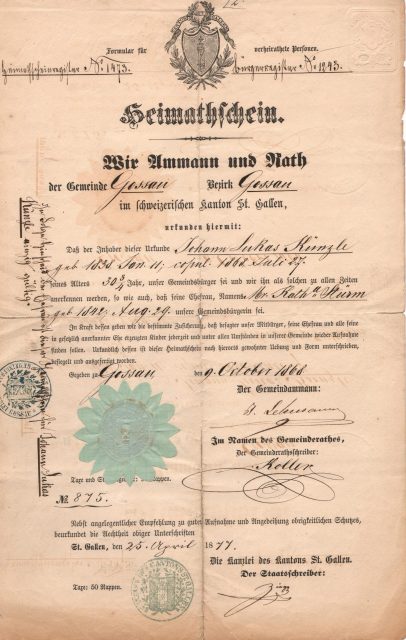 Formular für verheirathete Personen.
Heimathscheinregister No. 1473. Bürgerregister No. 1243.
Heimathschein.
Wir Ammann und Rath
der Gemeinde Gossau Bezirk Gossau
im schweizerischen Kanton St. Gallen,
urkunden hiermit:
Daß der Inhaber dieser Urkunde Johann Lukas Künzle
geb 1838 Jan. 11; copul. 1868 Juli 27.
seines Alters 30 3/4 Jahr, unser Gemeindsbürger sei und wir ihn als solchen zu allen Zeiten
anerkennen werden, so wie auch, daß seine Ehefrau, Namens Mr. Kath. Hürm
geb 1842, Aug. 29. unsere Gemeindsbürgerin sei.
In Kraft dessen geben wir die bestimmte Zusicherung, daß besagter unser Mitbürger, seine Ehefrau und alle seine
in gesetzlich anerkannter Ehe erzeugten Kinder jederzeit und unter allen Umständen in unserer Gemeinde wieder Aufnahme
finden sollen. Urkundlich dessen ist dieser Heimathschein nach hierorts gewohnter Uebung und Form unterschrieben,
besiegelt und ausgefertigt worden.
Gegeben zu Gossau den 9. October 1868
Der Gemeindammann:
Im Namen des Gemeinderathes,
Der Gemeinderathschreiber:
Koller
Taxe und
No. 875.
Nebst angelegentlicher Empfehlung zu guter Aufnahme und Angedeihung obrigkeitlichen Schutzes,
beurkundet die Aechtheit obiger Unterschriften
St. Gallen, den 25. April 1877.
Die Kanzlei des Kantons St. Gallen.
Der Staatsschreiber:
Taxe: 50 Rappen.